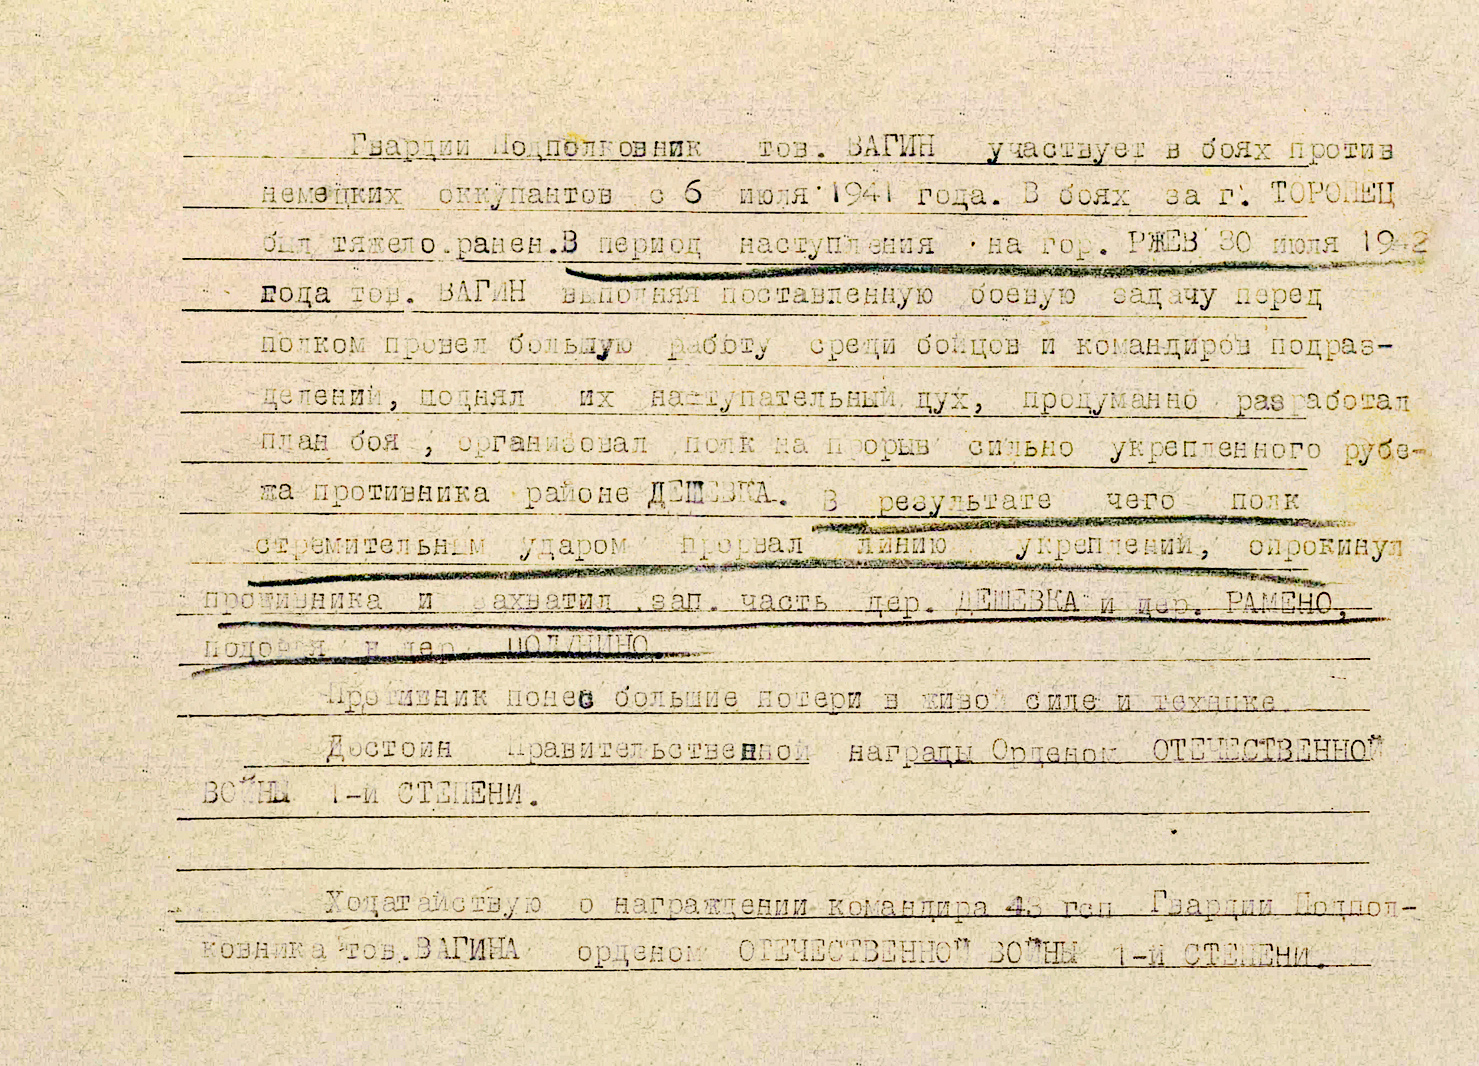 Гвардии Подполковник тов. ВАГИН участвует в боях против
немецких оккупантов с 6 июля 1941 года. В боях за г. ТОРОПЕЦ
был тяжело ранен. В период наступления на гор. РЖЕВ 30 июля 1942
года тов. ВАГИН выполняя поставленную боевую задачу перед
полком провел большую работу среди бойцов и командиров подраз-
делений, поднял их наступательный дух, продуманно разработал
план боя, организовал полк на прорыв сильно укрепленного рубе-
жа противника районе ДЕШЕВКА. В результате чего полк
стремительным ударом прорвал линию укреплений, опрокинул
противника и захватил зап. часть дер. ДЕШЕВКА и дер. РАМЕНО,
подойдя к дер. ПОЛУНИНО.
Противник понес большие потери в живой силе и технике.
Достоин Правительственной награды Орденом ОТЕЧЕСТВЕННОЙ
ВОЙНЫ 1-й СТЕПЕНИ.
Ходатайствую о награждении командира 43 гсп Гвардии Подпол-
ковника тов. ВАГИНА орденом ОТЕЧЕСТВЕННОЙ ВОЙНЫ 1-й СТЕПЕНИ.